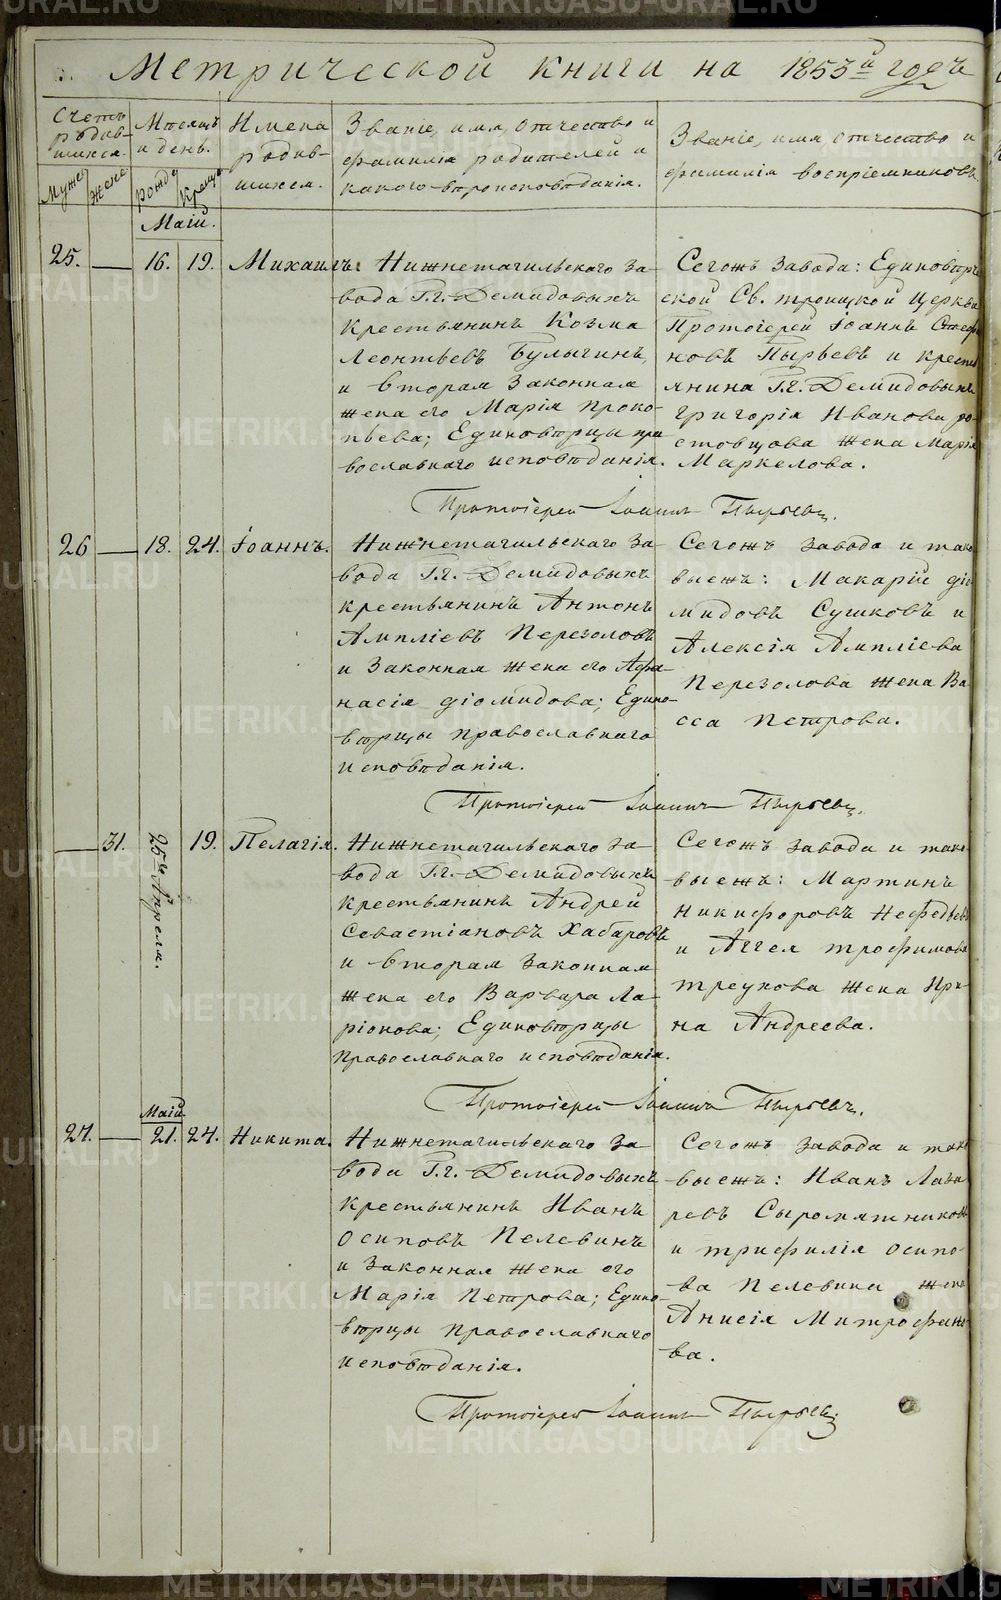 Метрической книги на 1853й годъ
Счетъ родив-шихся.
Мужес
Женс
Мѣсяцъ и день.
рожд
Крещ
Имена родив-шихся.
Званіе, имя, отчество и
фамилія родителей и
какого вѣроисповѣданія.
Званіе, имя, отчество и
фамилія воспріемниковъ
Маій.
25. — 16. 19. Михаилъ:
Нижнетагильскаго за-
вода Г.г. Демидовыхъ
крестьянинъ Козма
Леонтьевъ Булыгинъ,
и вторая законная
жена его Марія Проко-
пьева; Единовѣрцы пра
вославнаго исповѣданія.
Сегожъ завода: Единовѣрче
ской Св. троицкой Церкви
Протоіерей Іоаннъ Стефа
новъ Пырьевъ и кресть
янина Г.г. Демидовыхъ
григорія Иванова ро-
стовцова жена Марія
Маркелова.
Протоіерей Іоаннъ Пырьевъ.
26 — 18. 24. Іоаннъ.
Нижнетагильскаго за-
вода Г.г. Демидовыхъ
крестьянинъ Антонъ
Амплієвъ Перезоловъ
и законная жена его Афа-
насія діомидова; Едино-
вѣрцы православнаго
исповѣданія.
Сегожъ завода и тако
выежъ: Макарій діо
мидовъ Сушковъ и
Алексія Ампліева
Перезолова жена Ва
сса петрова.
Протоіерей Іоаннъ Пырьевъ.
— 31. 25го Апреля. 19. Пелагія.
Нижнетагильскаго за
вода Г.г. Демидовыхъ
крестьянинъ Андрей
Севастіановъ Хабаровъ
и вторая законная
жена его Варвара Ла-
ріонова; Единовѣрцы
православнаго исповѣданія.
Сегожъ завода и тако
выежъ: Мартинъ
Никифоровъ Нефедьевъ
и Аггея трофимова
треухова жена Ири-
на Андреева.
Протоіерей Іоаннъ Пырьевъ.
Маій
27. — 21. 24. Никита.
Нижнетагильскаго за
вода Г.г. Демидовыхъ
крестьянинъ Иванъ
Осиповъ Пелевинъ
и законная жена его
Марія Петрова; Едино-
вѣрцы православнаго
исповѣданія.
Сегожъ завода и тако
выежъ: Иванъ Лаза
ревъ Сыромятниковъ
и трифилія осипо-
ва Пелевина жена
Анисія Митрофано
ва.
Протоіерей Іоаннъ Пырьевъ.
METRIKI.GASO-URAL.RU